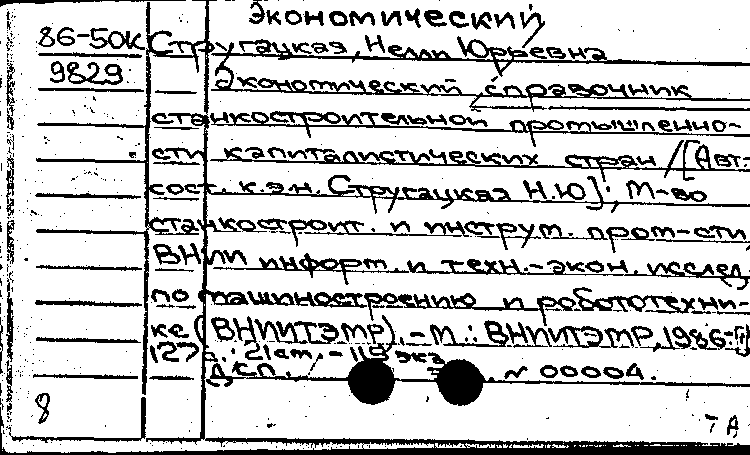 Экономический
86-50К Стругацкая, Нелли Юрьевна
9829 Экономический справочник
станкостроительной промышленно-
сти капиталистических стран / [Авт.-
сост. к.э.н. Стругацкая Н.Ю]; М-во
станкостроит. и инструм. пром-сти,
ВНИИ информ. и техн.-экон. исслед.
по машиностроению и робототехни-
ке (ВНИИТЭМР). - М.: ВНИИТЭМР, 1986.-
127 с.; 21см. - 119 экз
Дсп. № 00004.
8
ТА